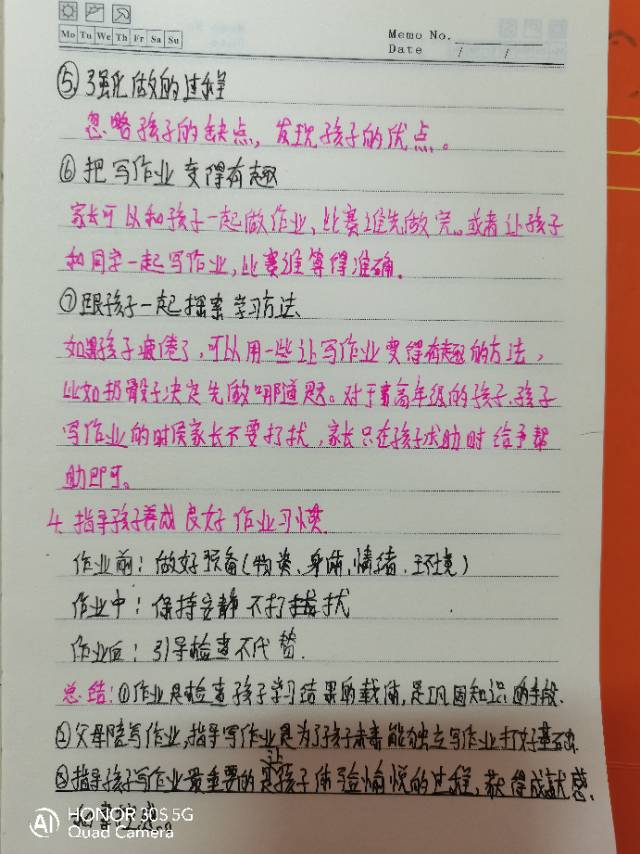 Mo Tu We Th Fr Sa Su
Memo No.
Date / /
⑤强化做的过程
忽略孩子的缺点，发现孩子的优点。
⑥把写作业变得有趣
家长可以和孩子一起做作业，比赛谁先做完。或者让孩子
和同学一起写作业，比赛谁算得准确。
⑦跟孩子一起探索学习方法
如果孩子疲倦了，可以用一些让写作业变得有趣的方法，
比如扔骰子决定先做哪道题。对于高年级的孩子，孩子
写作业的时侯家长不要打扰，家长只在孩子求助时给予帮
助即可。
4.指导孩子养成良好作业习惯
作业前：做好预备(物类、身体、情绪、环境)
作业中：保持安静不打扰
作业后：引导检查不代替.
总结：①作业是检查孩子学习结果的载体，是巩固知识的手段.
②父母陪写作业，指导写作业是为了孩子未来能独立写作业打好基础.
③指导孩子写作业最重要的是让孩子体验愉悦的过程，获得成就感.
AI HONOR 30S 5G
Quad Camera